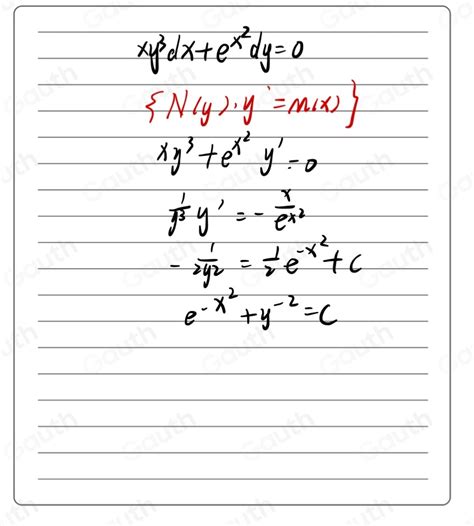 xy³dx+e^{x²}dy=0
{N(y)·y'=m(x)}
xy³+e^{x²} y'=0
1/y³ y' = - x/e^{x²}
- 1/2y² = 1/2 e^{-x²}+C
e^{-x²}+y^{-2}=C